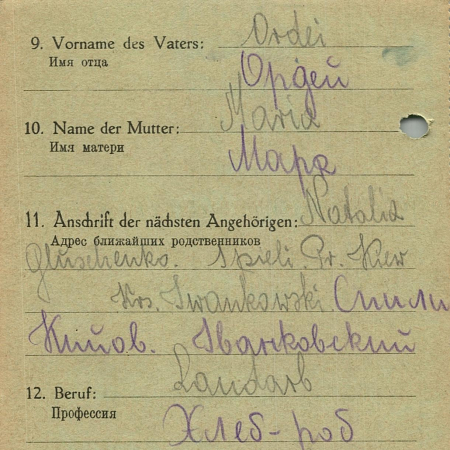 9. Vorname des Vaters: Ordei
Имя отца
Ордей
10. Name der Mutter: Maria
Имя матери
Мара
11. Anschrift der nächsten Angehörigen: Natalia
Адрес ближайших родственников
Gluschenko. Spieli. Pr. Kiew
Krs. Iwankowski Спили
Кийов. Іванковский
12. Beruf: Landarb
Профессия
Хлеб-роб